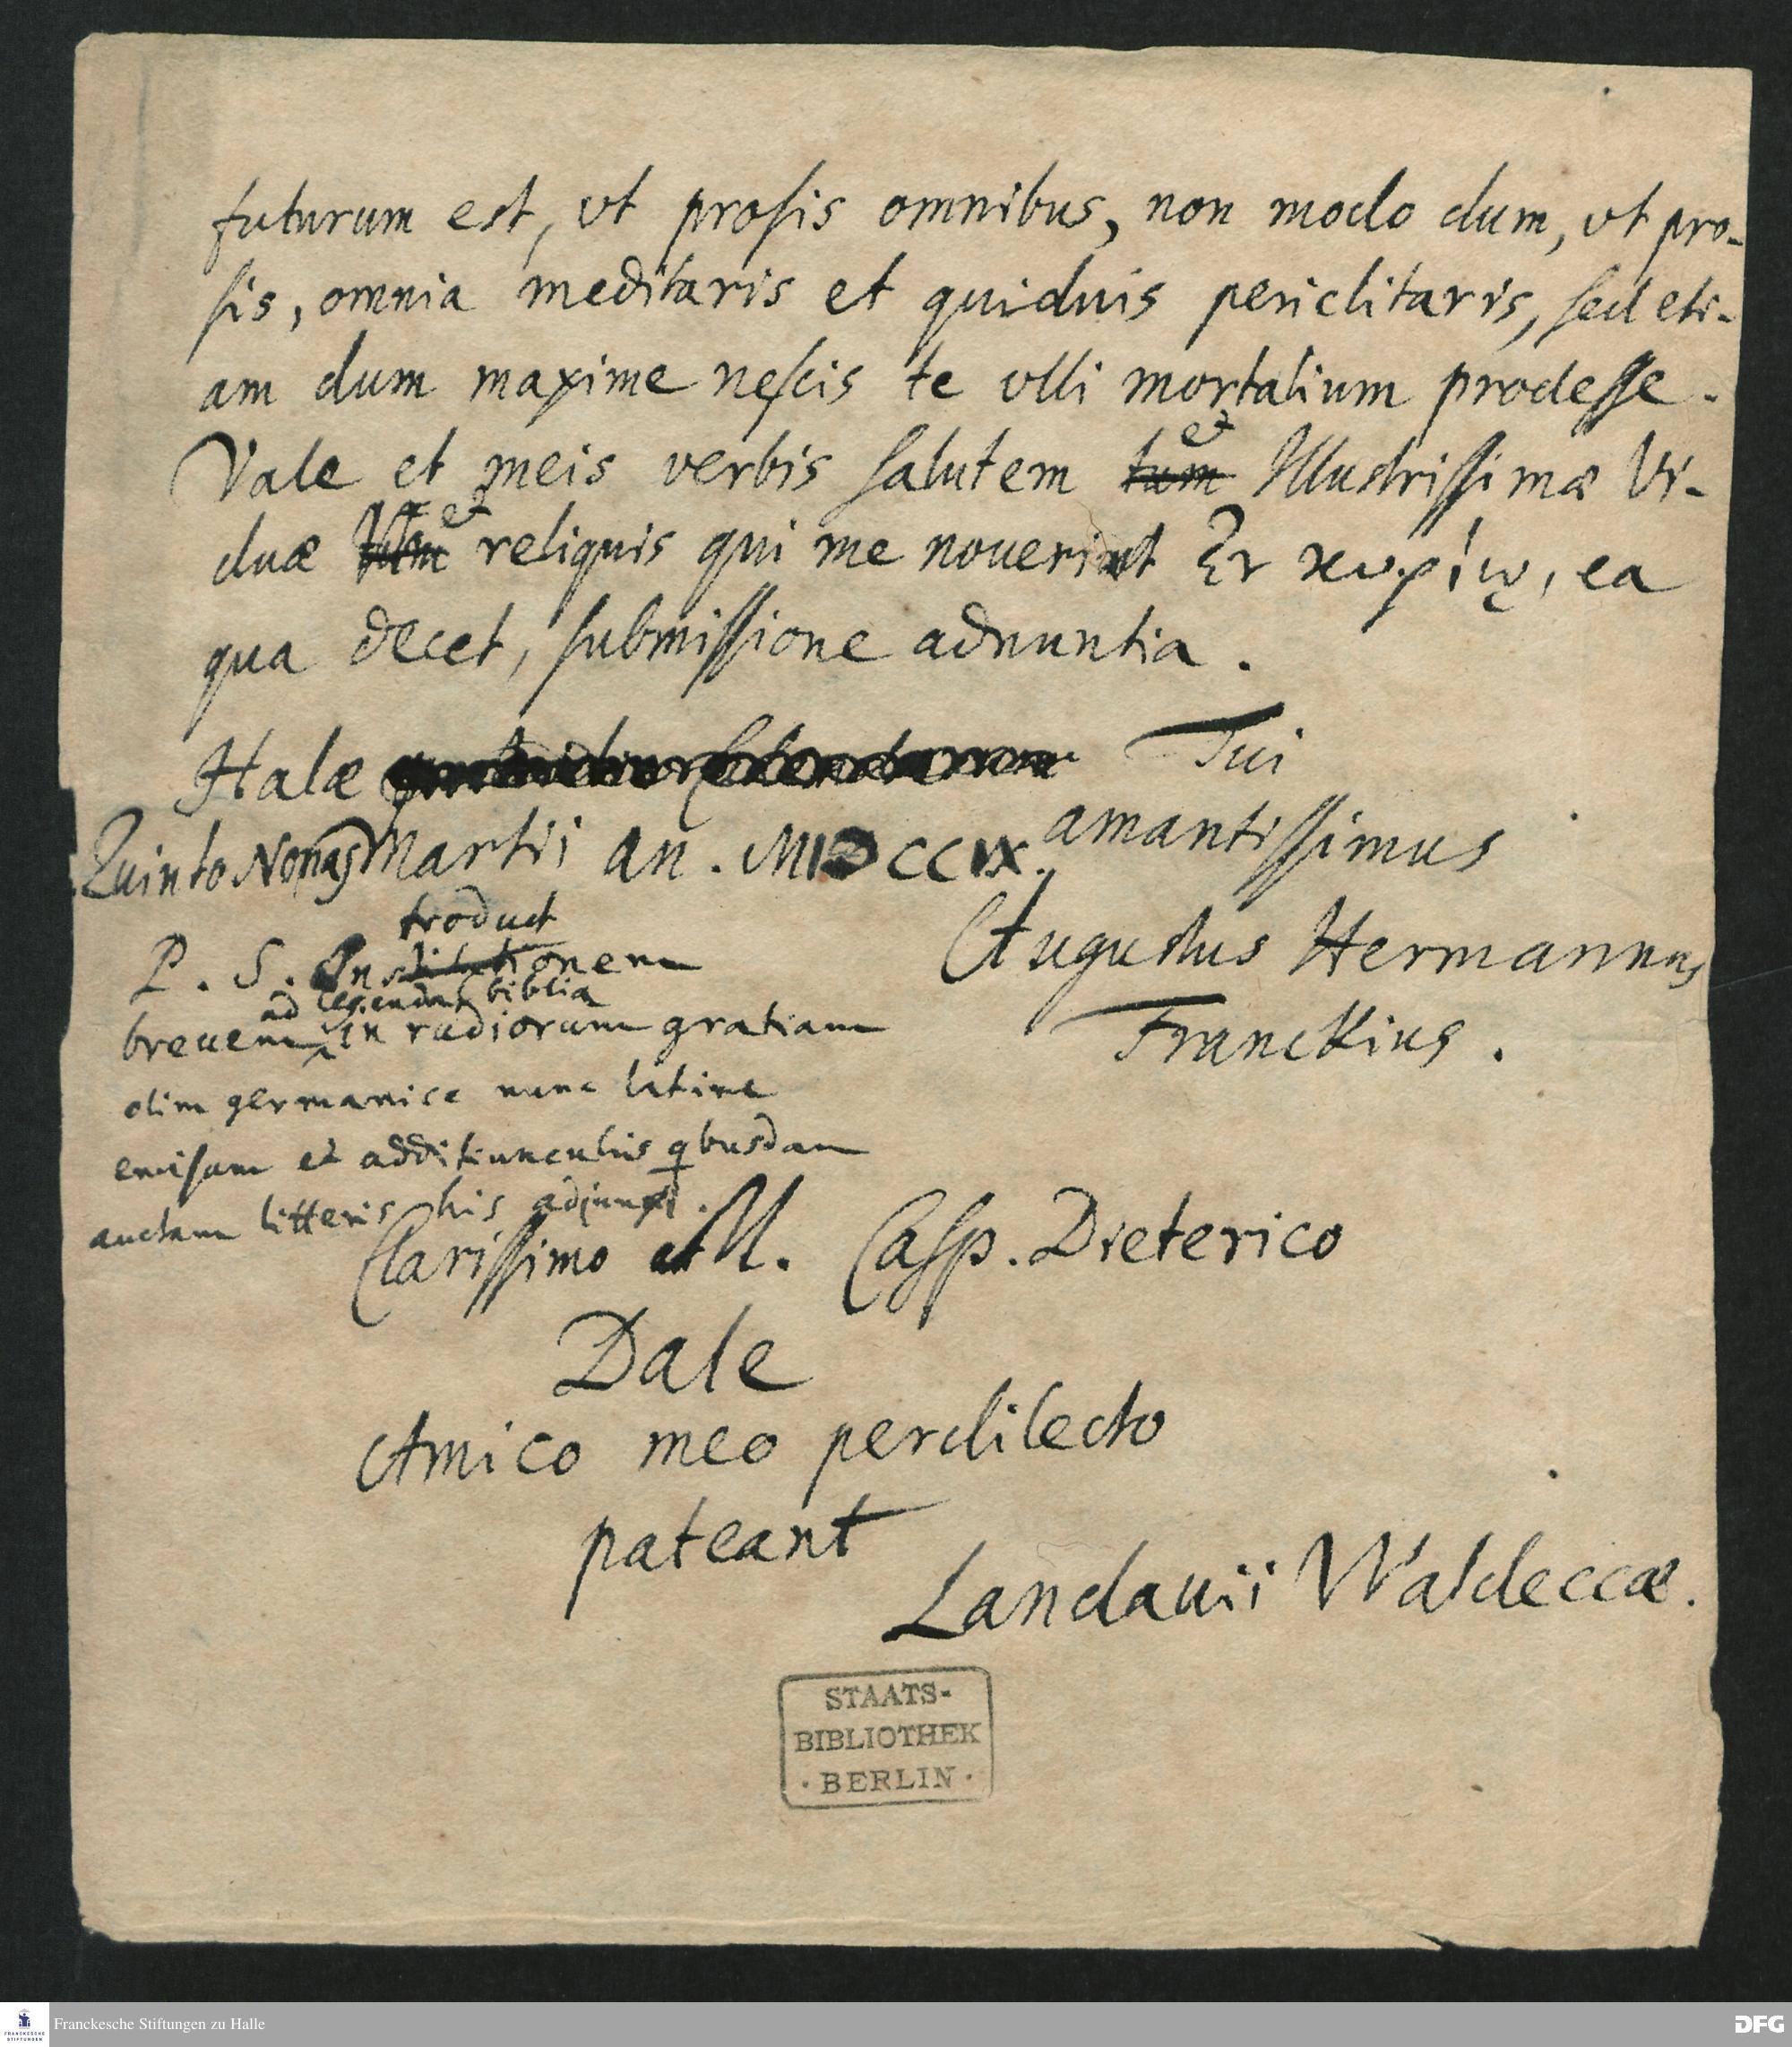 futurum est, vt prosis omnibus, non modo dum, vt pro-
sis, omnia meditaris et quiduis periclitaris, sed eti-
am dum maxime nescis te vlli mortalium prodesse.
et
Vale et meis verbis salutem tum Illustrissimæ Vi-
et
duæ reliquis qui me nouerint Ἐν κυρίῳ, ea
qua decet, submissione adnuntia.
Halæ Tui
Quinto Nonas Martii an. MDCCIX. amantissimus
Augustus Hermannus
Franckius.
troduct
P. S. Institutionem
ad legenda biblia
breuem in rudiorum gratiam
olim germanice nunc latine
emisam et additiunculis qbusdam
auctam litteris his adjunxi.
Clarissimo M. Casp. Dieterico
Dale
Amico meo perdilecto
pateant
Landauii Waldeccæ.
STAATS-
BIBLIOTHEK
· BERLIN ·
FRANCKESCHE
STIFTUNGEN
Franckesche Stiftungen zu Halle
DFG